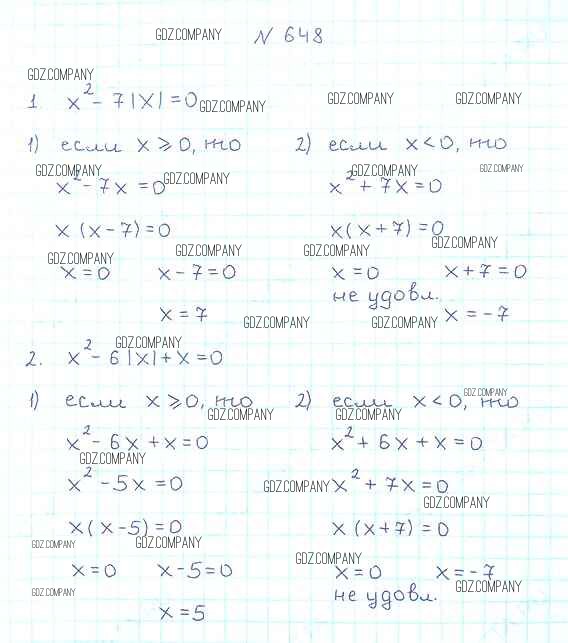 GDZ.COMPANY № 648
GDZ.COMPANY
1. x² - 7|x| = 0 GDZ.COMPANY GDZ.COMPANY GDZ.COMPANY
1) если x ⩾ 0, то 2) если x < 0, то
GDZ.COMPANY GDZ.COMPANY GDZ.COMPANY GDZ.COMPANY
x² - 7x = 0 x² + 7x = 0
x (x - 7) = 0 x (x + 7) = 0
GDZ.COMPANY GDZ.COMPANY GDZ.COMPANY GDZ.COMPANY
x = 0 x - 7 = 0 x = 0 x + 7 = 0
не удовл.
x = 7 GDZ.COMPANY GDZ.COMPANY x = -7
GDZ.COMPANY
2. x² - 6|x| + x = 0
GDZ.COMPANY
1) если x ⩾ 0, то 2) если x < 0, то
GDZ.COMPANY GDZ.COMPANY
x² - 6x + x = 0 x² + 6x + x = 0
GDZ.COMPANY
x² - 5x = 0 GDZ.COMPANY x² + 7x = 0
GDZ.COMPANY
x (x - 5) = 0 x (x + 7) = 0
GDZ.COMPANY GDZ.COMPANY GDZ.COMPANY
x = 0 x - 5 = 0 x = 0 x = -7
GDZ.COMPANY не удовл. GDZ.COMPANY
x = 5